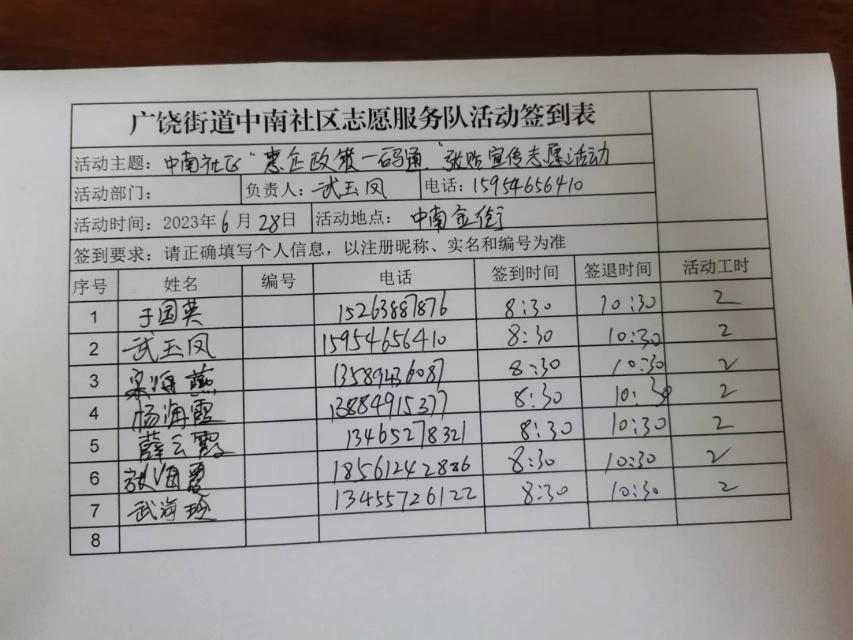 广饶街道中南社区志愿服务队活动签到表
活动主题: 中南社区"惠企政策一码通"张贴宣传志愿活动
活动部门: 负责人: 武玉凤 电话: 15954656410
活动时间: 2023年6月28日 活动地点: 中南金街
签到要求: 请正确填写个人信息，以注册昵称、实名和编号为准
序号 姓名 编号 电话 签到时间 签退时间 活动工时
1 于国英 15263887876 8:30 10:30 2
2 武玉凤 15954656410 8:30 10:30 2
3 梁海燕 13589436087 8:30 10:30 2
4 杨海霞 13884915377 8:30 10:30 2
5 薛云霞 13465278321 8:30 10:30 2
6 张海霞 18561242886 8:30 10:30 2
7 武海玲 13455726122 8:30 10:30 2
8